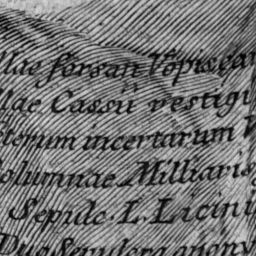 llae forsan Vopiscan
llae Cassii vestigi
terum incertarum V
Columnae Milliaris
Sepulc. L. Licini
Duo Sepulcra anony